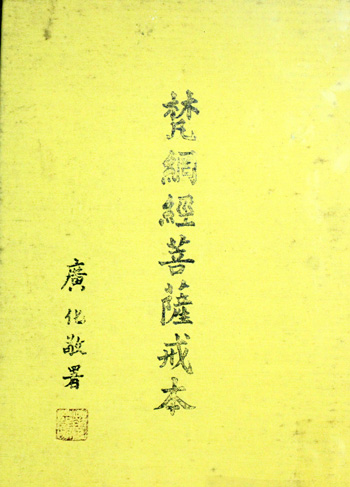 梵網經菩薩戒本
廣化敬署